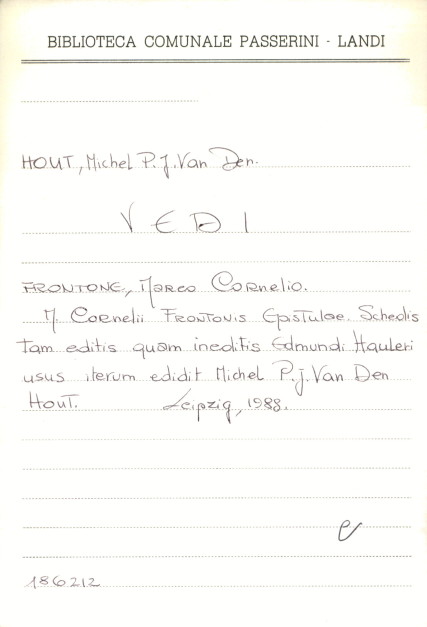 BIBLIOTECA COMUNALE PASSERINI - LANDI
HOUT, Michel P.J. Van Den.
VEDI
FRONTONE, Marco Cornelio.
M. Cornelii Frontonis Epistulae. Scheolis
tam editis quam ineditis Edmundi Hauleri
usus iterum edidit Michel P.J. Van Den
Hout. Leipzig, 1988.
e
186212